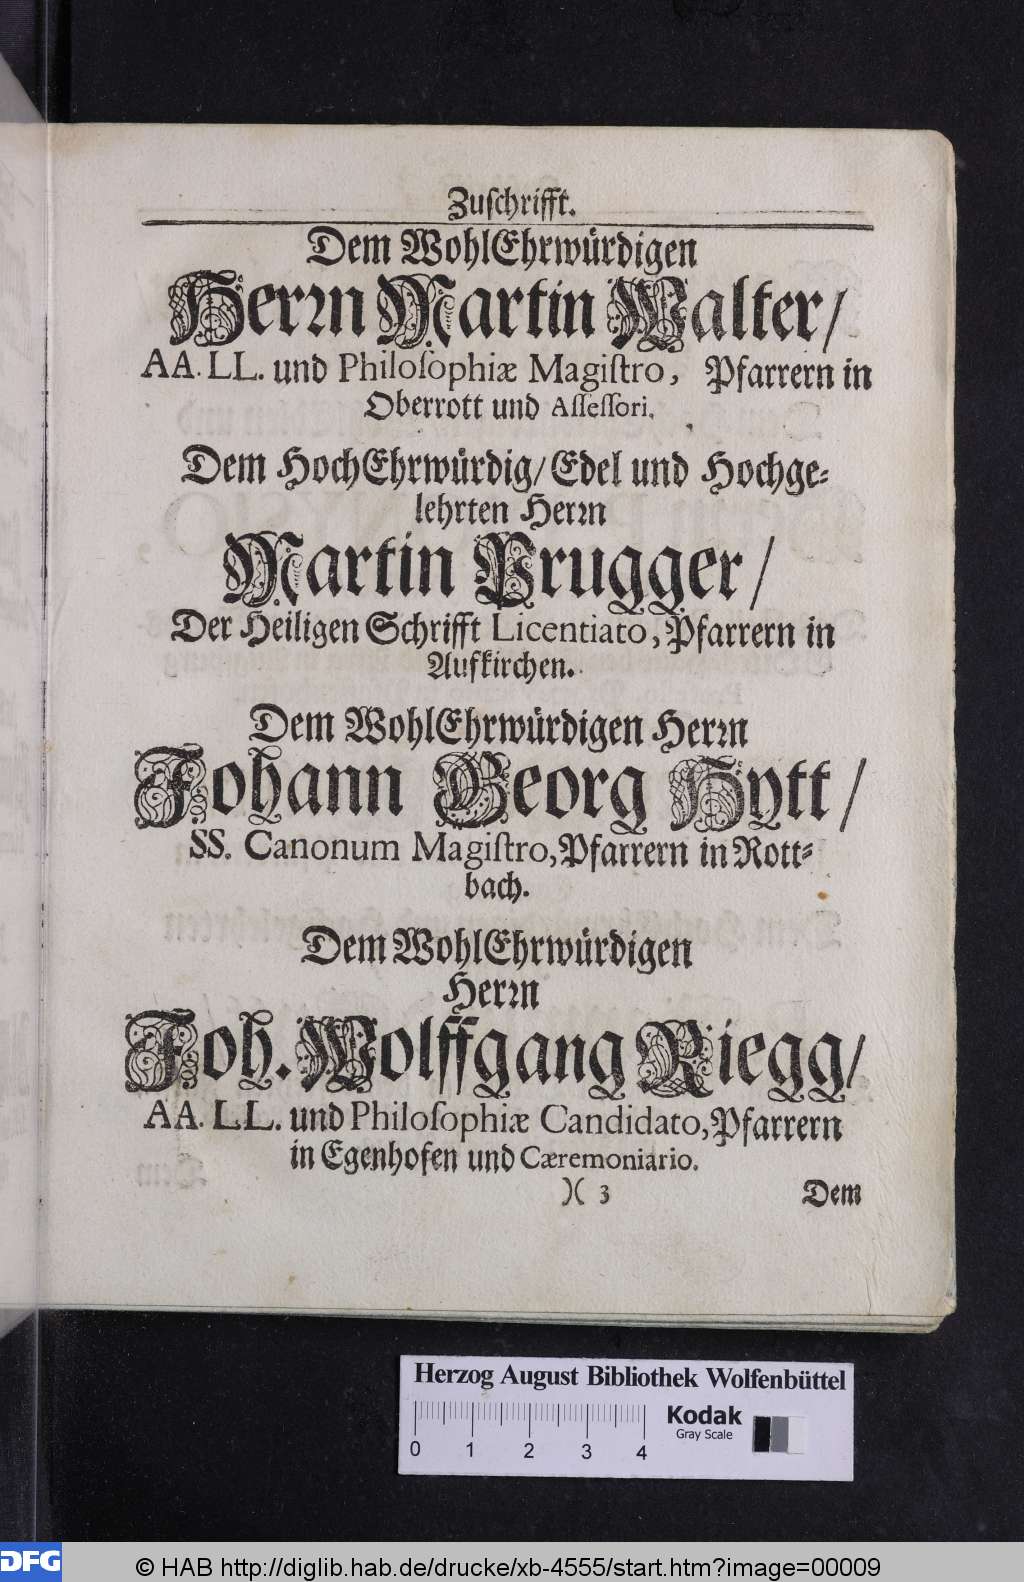 Zuſchrifft.
Dem WohlEhrwürdigen
Herrn Martin Walter/
AA. LL. und Philoſophiæ Magiſtro, Pfarrern in
Oberrott und Aſſeſſori.
Dem HochEhrwürdig/ Edel und Hochge-
lehrten Herrn
Martin Prugger/
Der Heiligen Schrifft Licentiato, Pfarrern in
Aufkirchen.
Dem WohlEhrwürdigen Herrn
Johann Georg Hytt/
SS. Canonum Magiſtro, Pfarrern in Rott-
bach.
Dem WohlEhrwürdigen
Herrn
Joh. Wolffgang Riegg/
AA. LL. und Philoſophiæ Candidato, Pfarrern
in Egenhofen und Cæremoniario.
)( 3 Dem
Herzog August Bibliothek Wolfenbüttel
0 1 2 3 4
Kodak
Gray Scale
DFG
© HAB http://diglib.hab.de/drucke/xb-4555/start.htm?image=00009